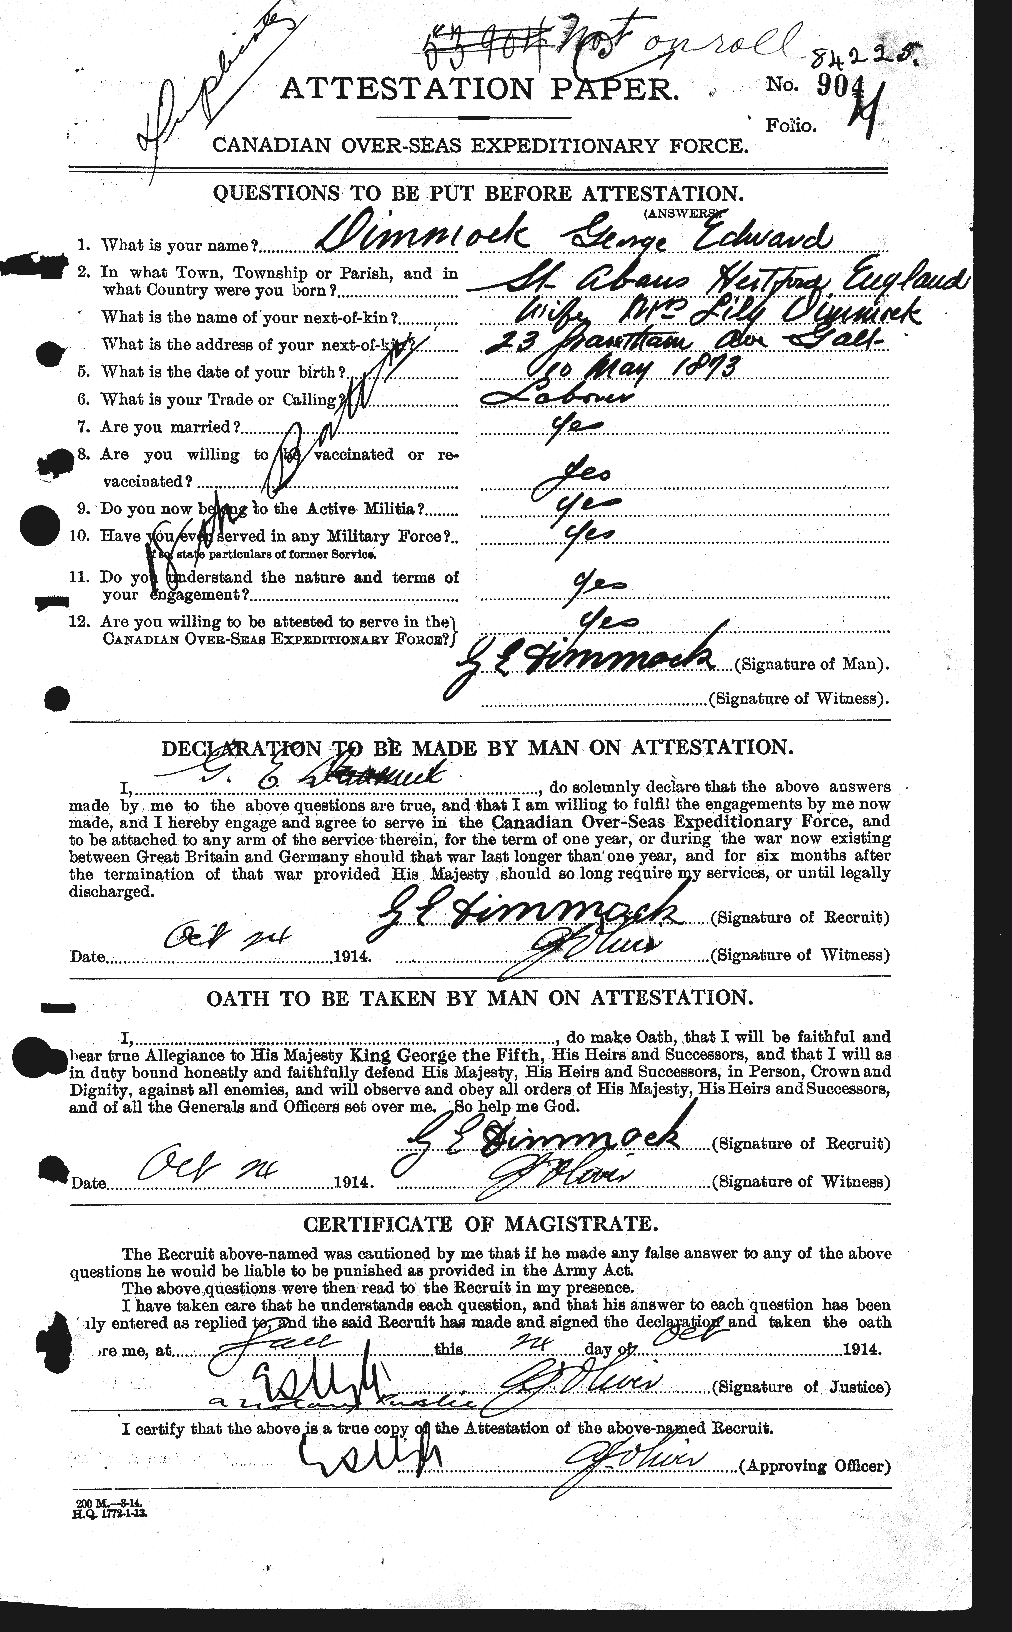 53904 Not on roll
Duplicate
84225.
ATTESTATION PAPER.
No. 904
Folio.
CANADIAN OVER-SEAS EXPEDITIONARY FORCE.
QUESTIONS TO BE PUT BEFORE ATTESTATION.
(ANSWERS)
1. What is your name? Dimmock George Edward
2. In what Town, Township or Parish, and in
what Country were you born? St Abans Hertford England
What is the name of your next-of-kin? Wife Mrs Lily Dimmock
What is the address of your next-of-kin? 23 Grantham Ave Galt
5. What is the date of your birth? 10 May 1873
6. What is your Trade or Calling? Labourer
7. Are you married? yes
8. Are you willing to be vaccinated or re-
vaccinated? yes
9. Do you now belong to the Active Militia? yes
10. Have you ever served in any Military Force? yes
If so, state particulars of former Service.
11. Do you understand the nature and terms of
your engagement? yes
12. Are you willing to be attested to serve in the
CANADIAN OVER-SEAS EXPEDITIONARY FORCE? yes
18th Battn
G E Dimmock (Signature of Man).
(Signature of Witness).
DECLARATION TO BE MADE BY MAN ON ATTESTATION.
I, G. E. Dimmock, do solemnly declare that the above answers
made by me to the above questions are true, and that I am willing to fulfil the engagements by me now
made, and I hereby engage and agree to serve in the Canadian Over-Seas Expeditionary Force, and
to be attached to any arm of the service therein, for the term of one year, or during the war now existing
between Great Britain and Germany should that war last longer than one year, and for six months after
the termination of that war provided His Majesty should so long require my services, or until legally
discharged.
G E Dimmock (Signature of Recruit)
Date Oct 24 1914. G Oliver (Signature of Witness)
OATH TO BE TAKEN BY MAN ON ATTESTATION.
I, , do make Oath, that I will be faithful and
bear true Allegiance to His Majesty King George the Fifth, His Heirs and Successors, and that I will as
in duty bound honestly and faithfully defend His Majesty, His Heirs and Successors, in Person, Crown and
Dignity, against all enemies, and will observe and obey all orders of His Majesty, His Heirs and Successors,
and of all the Generals and Officers set over me. So help me God.
G E Dimmock (Signature of Recruit)
Date Oct 24 1914. Oliver (Signature of Witness)
CERTIFICATE OF MAGISTRATE.
The Recruit above-named was cautioned by me that if he made any false answer to any of the above
questions he would be liable to be punished as provided in the Army Act.
The above questions were then read to the Recruit in my presence.
I have taken care that he understands each question, and that his answer to each question has been
ly entered as replied to, and the said Recruit has made and signed the declaration and taken the oath
re me, at Galt this 24 day of Oct 1914.
Oliver (Signature of Justice)
a Notary Public
I certify that the above is a true copy of the Attestation of the above-named Recruit.
Oliver (Approving Officer)
200 M.—8-14.
H.Q. 1772-1-13.